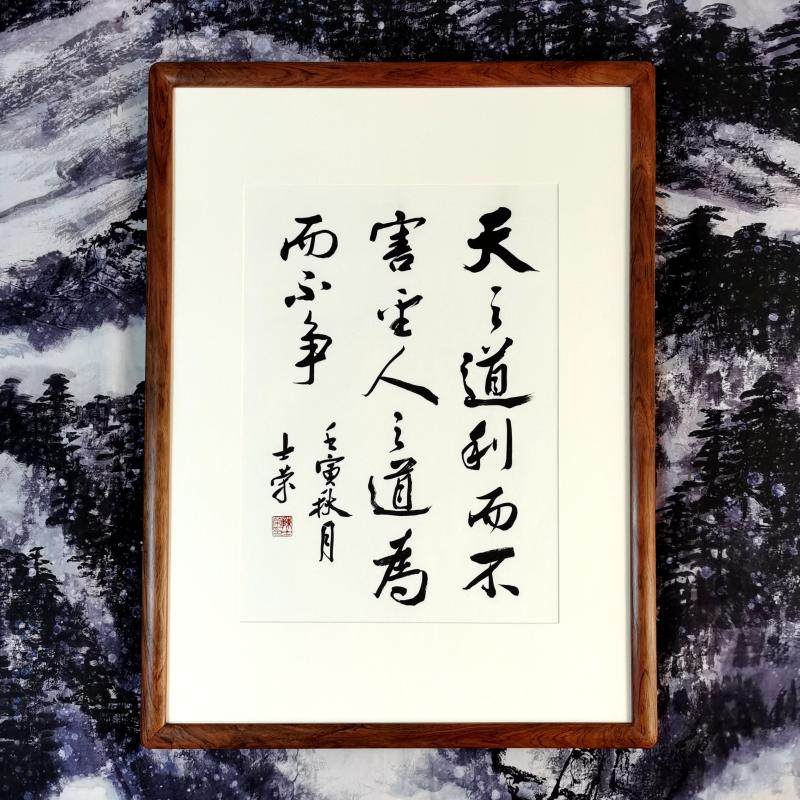 天之道利而不
害聖人之道為
而不争
壬寅秋月
士荣